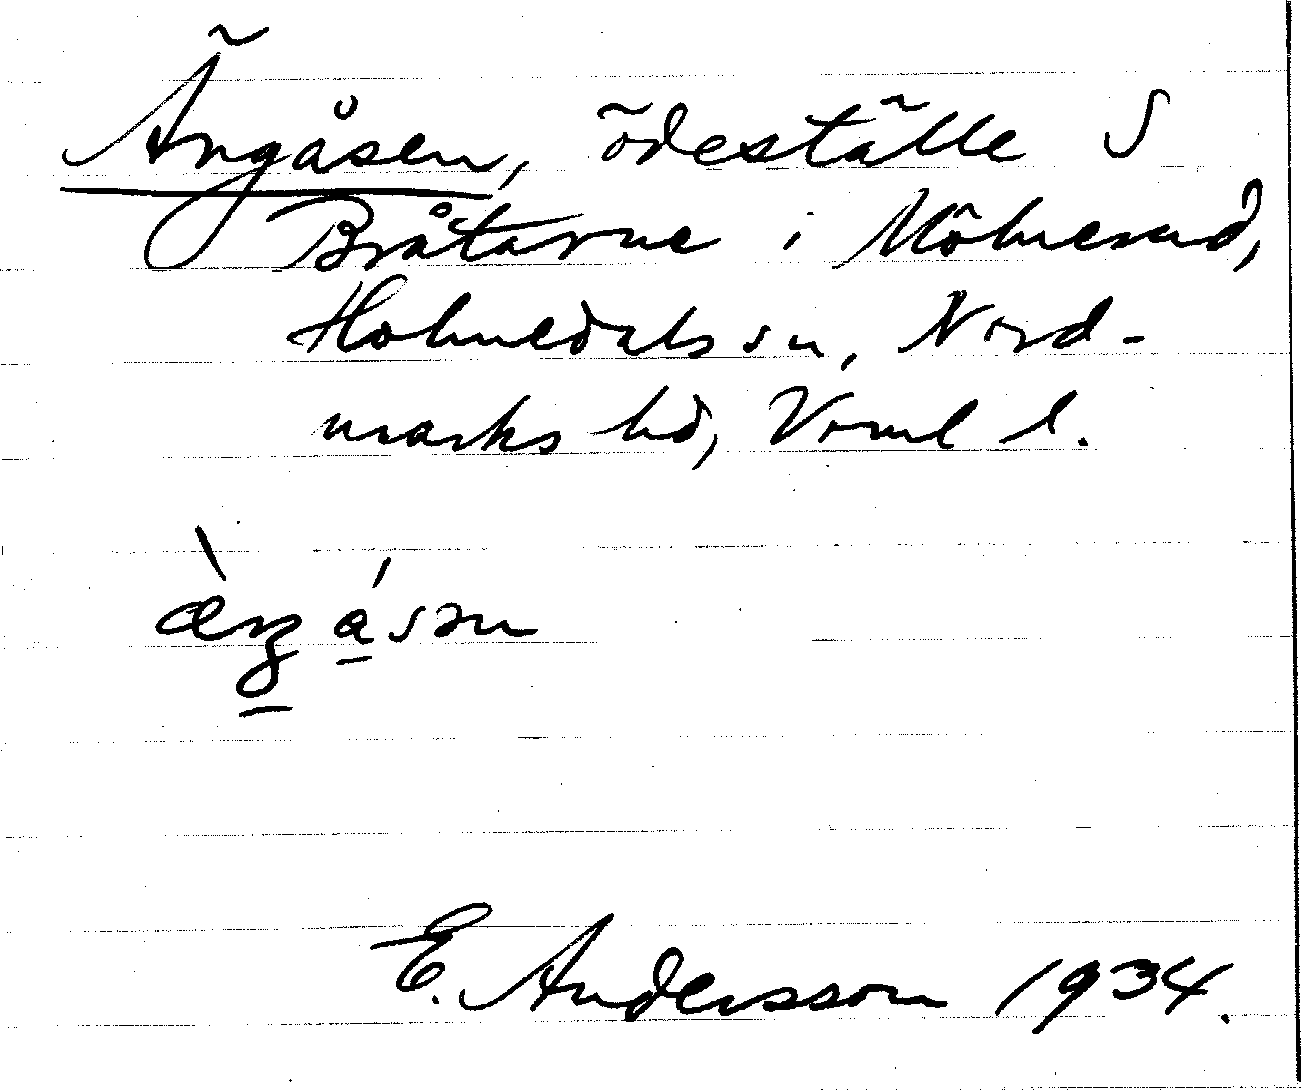 Ängåsen, ödeställe S
Bråtarne i Mölnerud,
Holmedals sn, Nord-
marks hd, Vrml l.
E. Andersson 1934.